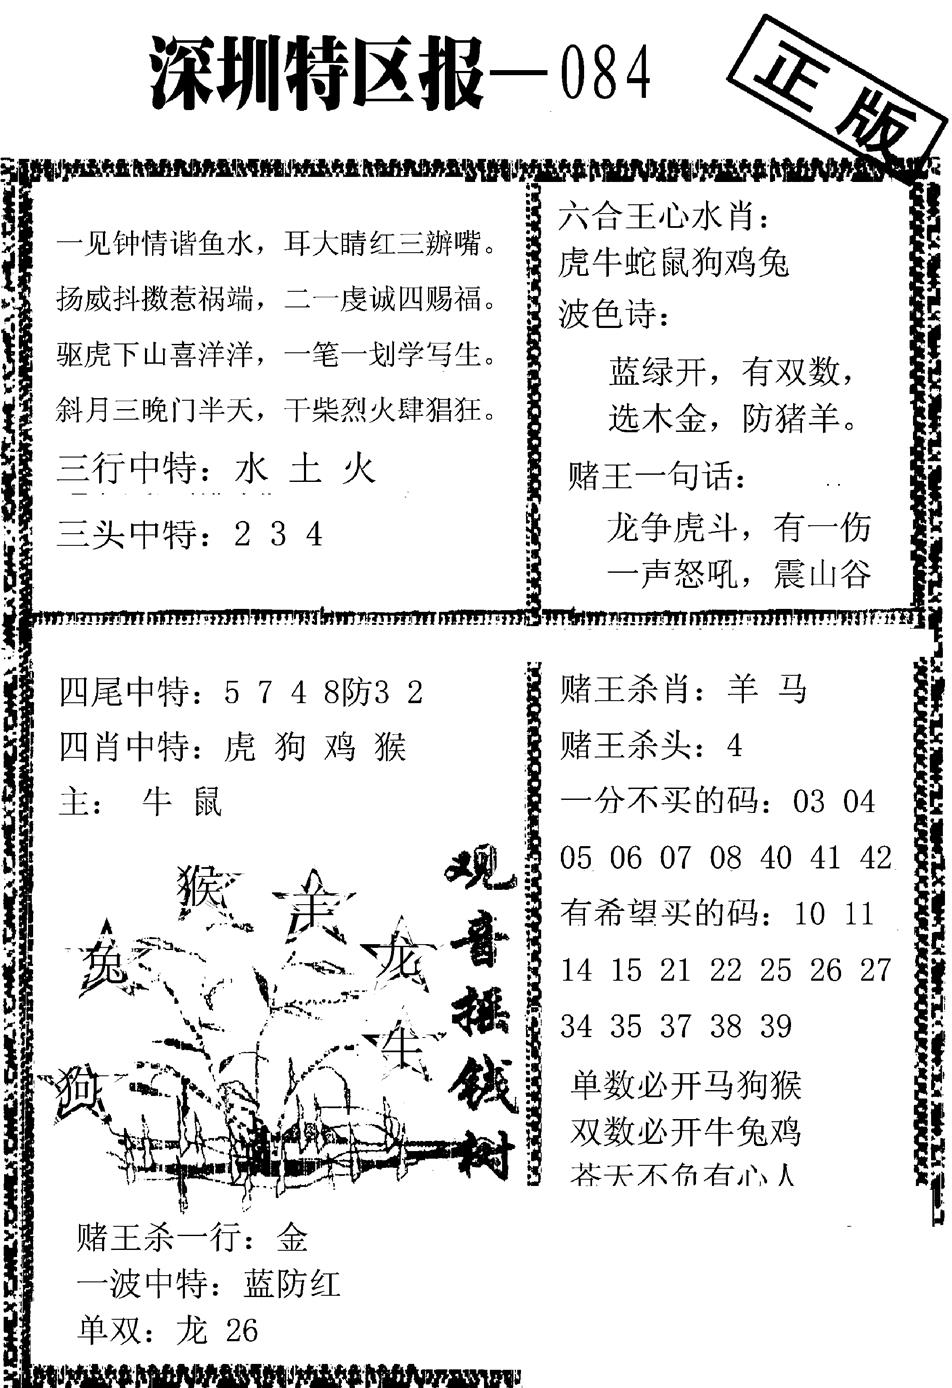 深圳特区报—084
正版
一见钟情谐鱼水，耳大睛红三辦嘴。
扬威抖擞惹祸端，二一虔诚四赐福。
驱虎下山喜洋洋，一笔一划学写生。
斜月三晚门半天，干柴烈火肆猖狂。
三行中特：水 土 火
三头中特：2 3 4
六合王心水肖：
虎牛蛇鼠狗鸡兔
波色诗：
蓝绿开，有双数，
选木金，防猪羊。
赌王一句话：
龙争虎斗，有一伤
一声怒吼，震山谷
四尾中特：5 7 4 8防3 2
四肖中特：虎 狗 鸡 猴
主： 牛 鼠
猴
羊
兔
龙
牛
狗
观音摇钱树
赌王杀一行：金
一波中特：蓝防红
单双：龙 26
赌王杀肖：羊 马
赌王杀头：4
一分不买的码：03 04
05 06 07 08 40 41 42
有希望买的码：10 11
14 15 21 22 25 26 27
34 35 37 38 39
单数必开马狗猴
双数必开牛兔鸡
苍天不负有心人